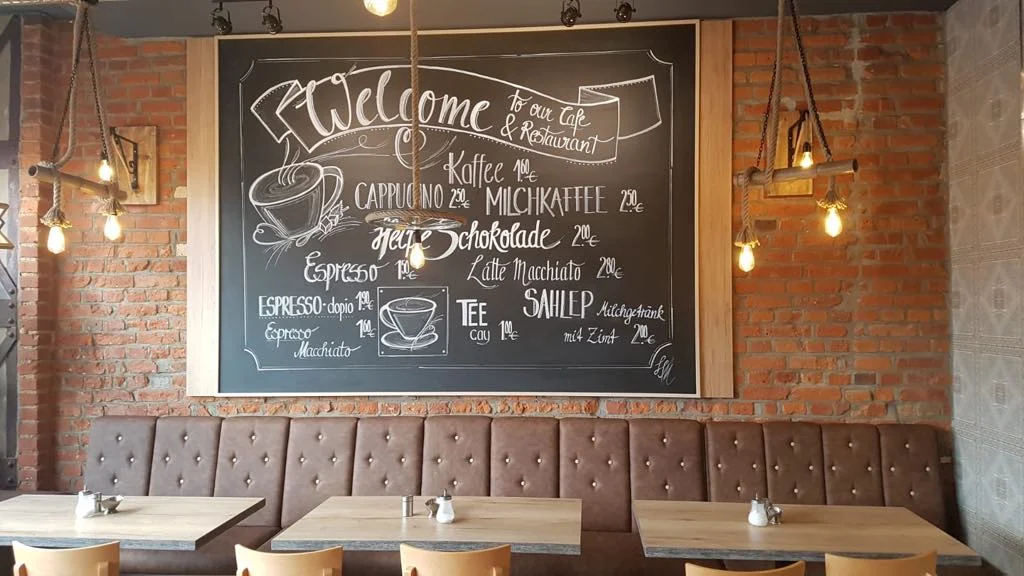 Welcome to our Cafe
& Restaurant
Kaffee 1.60€
CAPPUCINO 2.50€ MILCHKAFFEE 2.50€
Heiße Schokolade 2.00€
Espresso Latte Macchiato 2.00€
ESPRESSO-dopio 1.90€ TEE SAHLEP Milchgetränk
Espresso 1.60€ cay 1.00€ mit Zimt 2.00€
Macchiato